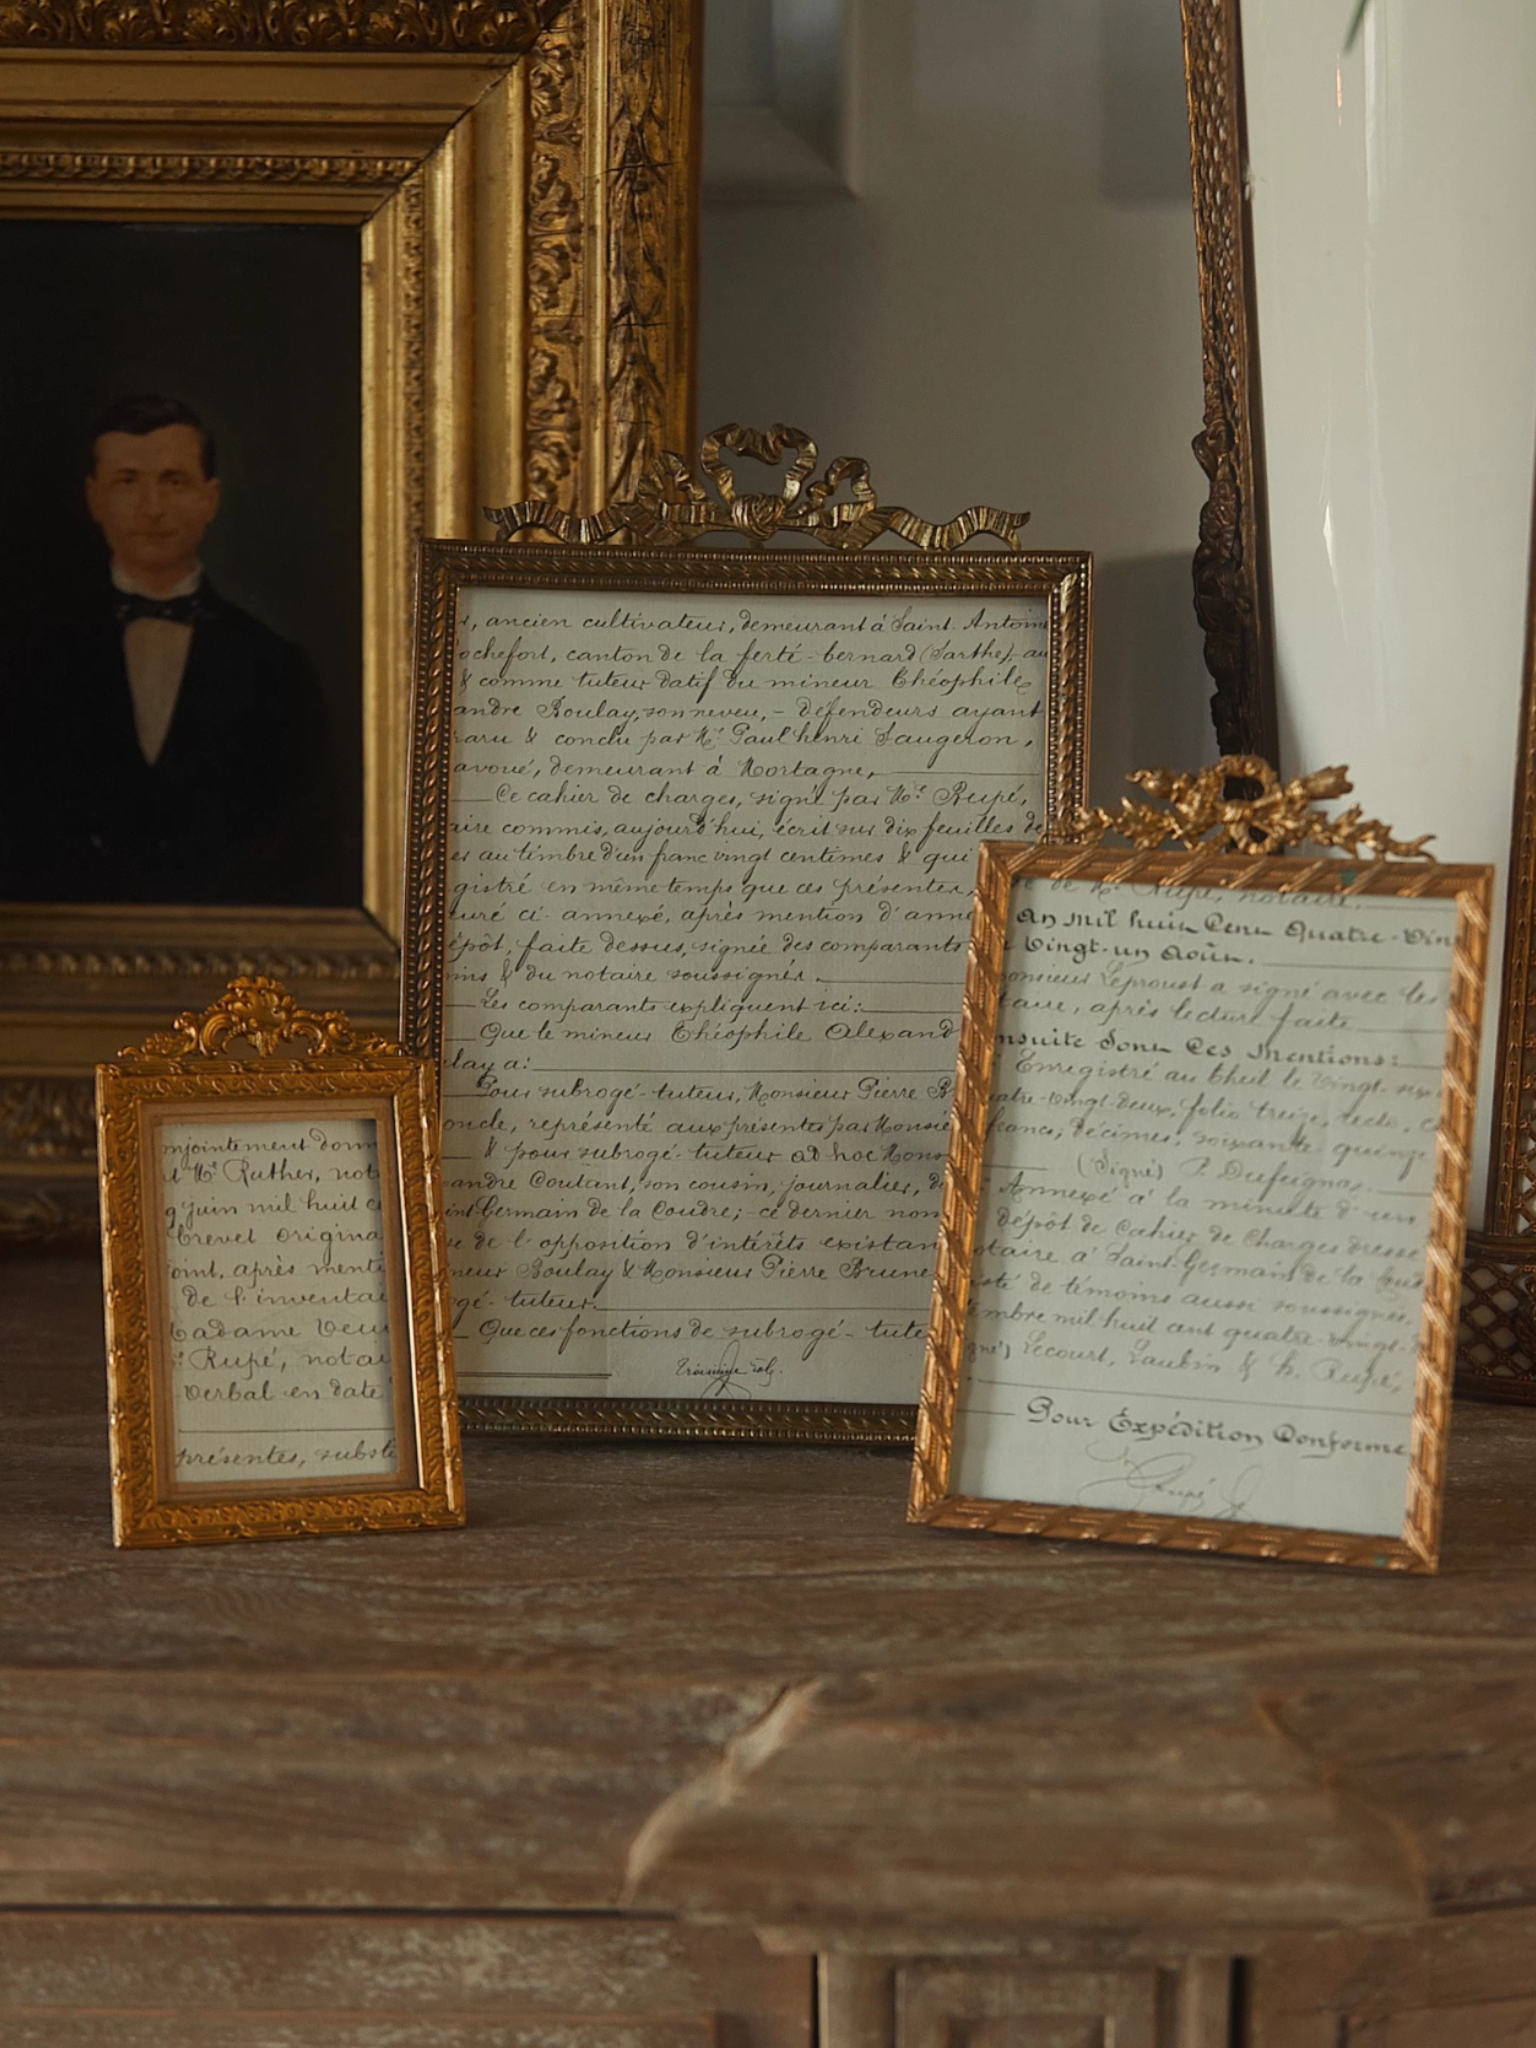 onjointement donn
Me Ruther, not
juin mil huit c
brevet origina
oint, après menti
de l'inventai
Madame Veu
Rupé, notai
verbal en date
présentes, substi
r, ancien cultivateur, demeurant à Saint Antoine
ochefort, canton de la ferté-bernard (Sarthe), au
& comme tuteur datif du mineur Théophile
andre Boulay, son neveu, - défendeurs ayant
paru & conclu par Me Paul henri Faugeron,
avoué, demeurant à Mortagne,
Ce cahier de charges, signé par Me Rupé,
aire commis, aujourd'hui, écrit sur dix feuilles de
er au timbre d'un franc vingt centimes & qui
gistré en même temps que ces présentes,
euré ci-annexé, après mention d'anne
épôt, faite dessus, signée des comparants
ins & du notaire soussignés.
Les comparants expliquent ici:
Que le mineur Théophile Alexand
lay a:
Pour subrogé-tuteur, Monsieur Pierre B
oncle, représenté aux présentes par Monsie
& pour subrogé-tuteur ad hoc Mons
andre Coutant, son cousin, journalier, d
int Germain de la Coudre; ce dernier nom
se de l'opposition d'intérêts existan
neur Boulay & Monsieur Pierre Brune
ogé-tuteur.
Que ces fonctions de subrogé-tute
de Me Rupé, notaire.
An mil huit Cent Quatre-Vin
Vingt-un Août.
onsieur Leproust a signé avec les
taire, après lecture faite
nsuite Sont Ces Mentions:
Enregistré au Theil le Vingt-six
uatre-vingt-deux, folio treize, recto, c
francs, décimes, soixante-quinze
(Signé)
Annexé à la minute d'un
dépôt de Cahier de Charges dressé
otaire à Saint-Germain de la Coud
isté de témoins aussi soussignés,
embre mil huit cent quatre-vingt-
gné) Lecourt, & h. Rupé,
Pour Expédition Conforme
Rupé